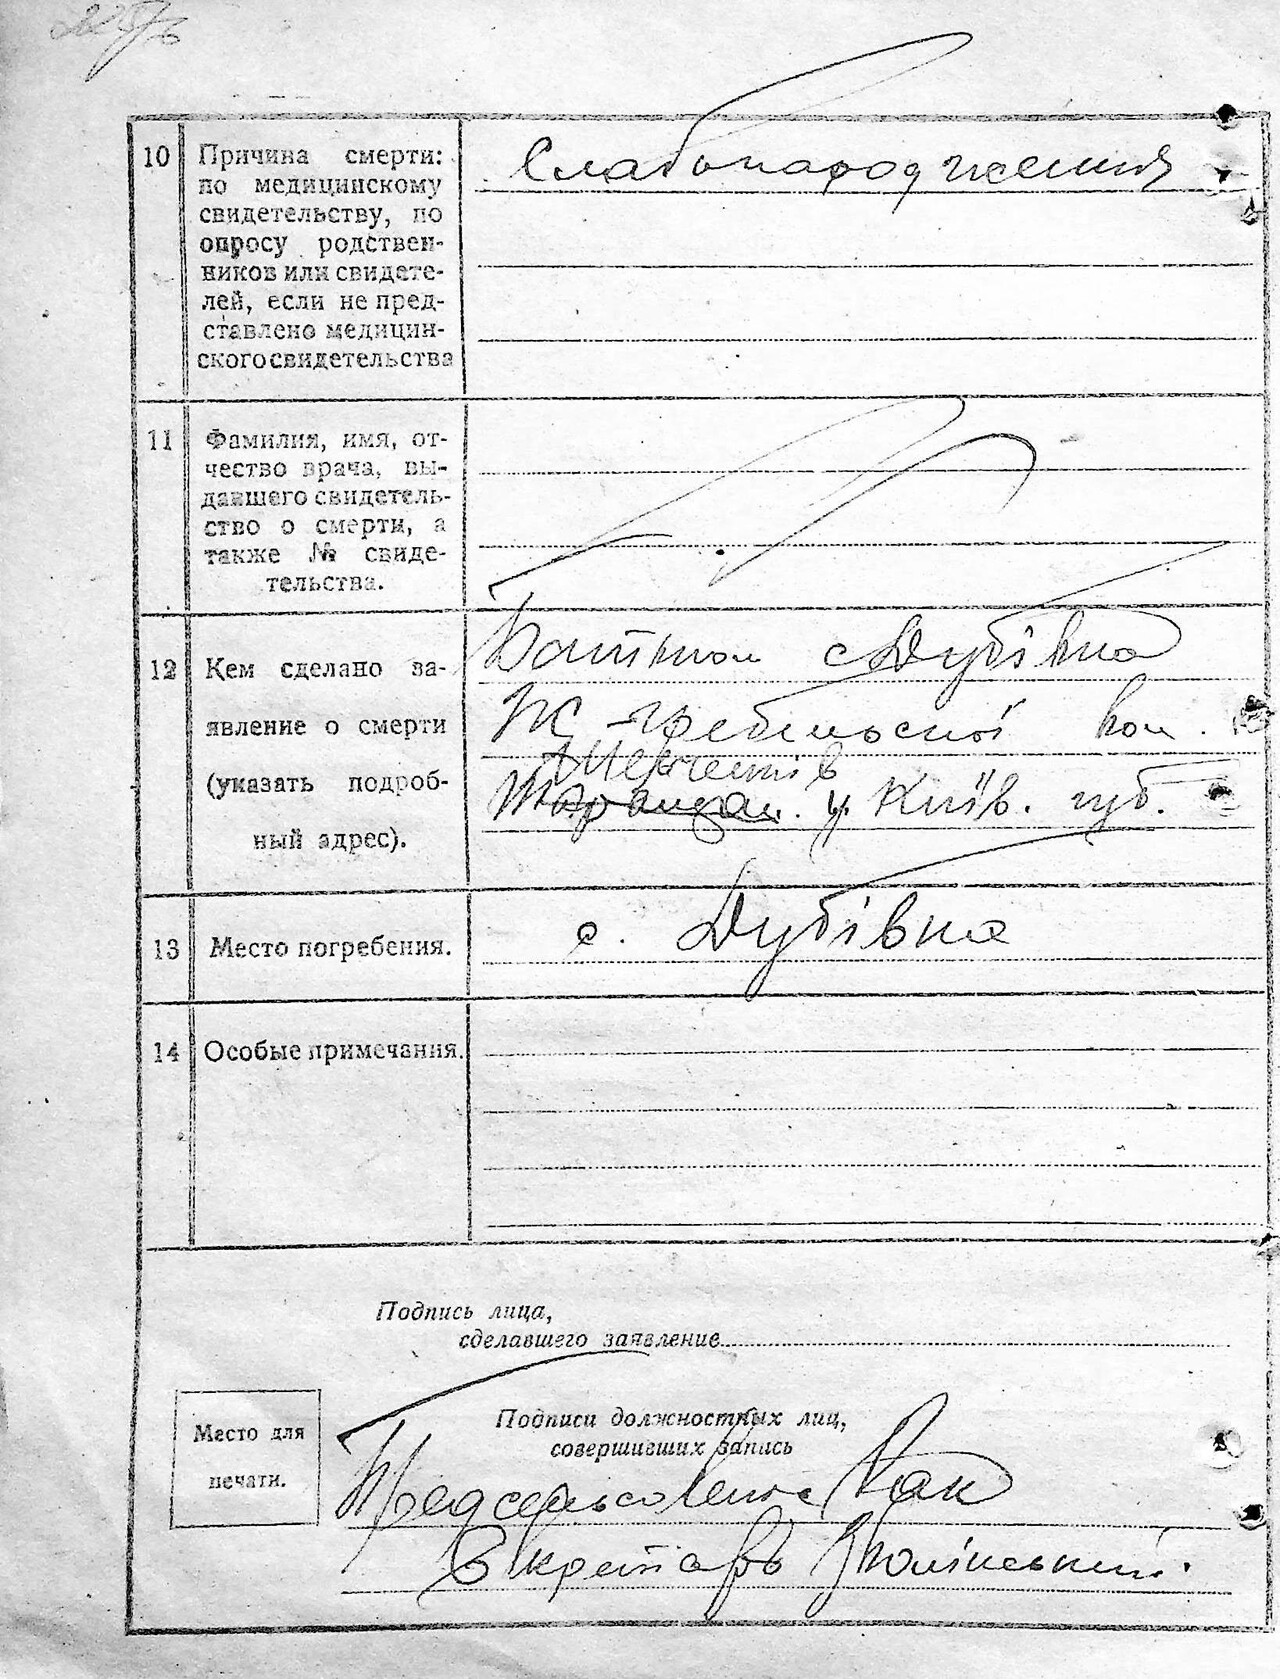 10 Причина смерти: Слабонароджений
по медицинскому
свидетельству, по
опросу родствен-
ников или свидете-
лей, если не пред-
ставлено медицин-
ского свидетельства
11 Фамилия, имя, от-
чество врача, вы-
давшего свидетель-
ство о смерти, а
также № свиде-
тельства.
12 Кем сделано за-
явление о смерти
(указать подроб-
ный адрес).
Батьком с Дубівка
гребельской
у Київ. губ.
13 Место погребения. с. Дубівка
14 Особые примечания.
Подпись лица,
сделавшего заявление
Место для
печати.
Подписи должностных лиц,
совершивших запись
Предсельсовета Рак
Секретарь